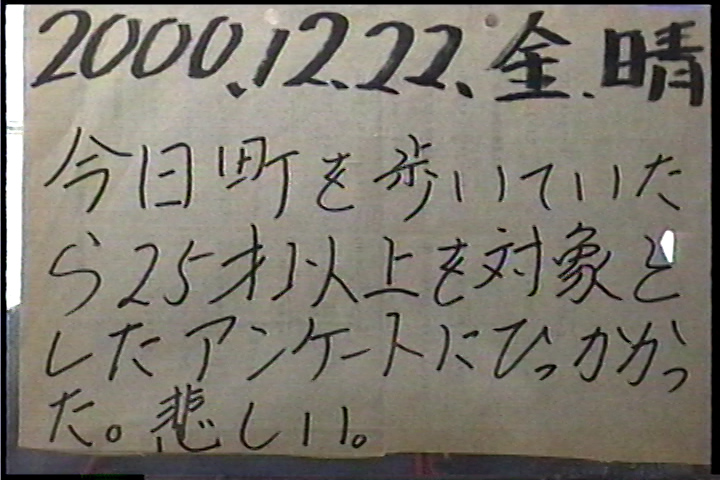 2000.12.22.金.晴
今日町を歩いていた
ら25才以上を対象と
したアンケートにひっかかっ
た。悲しい。